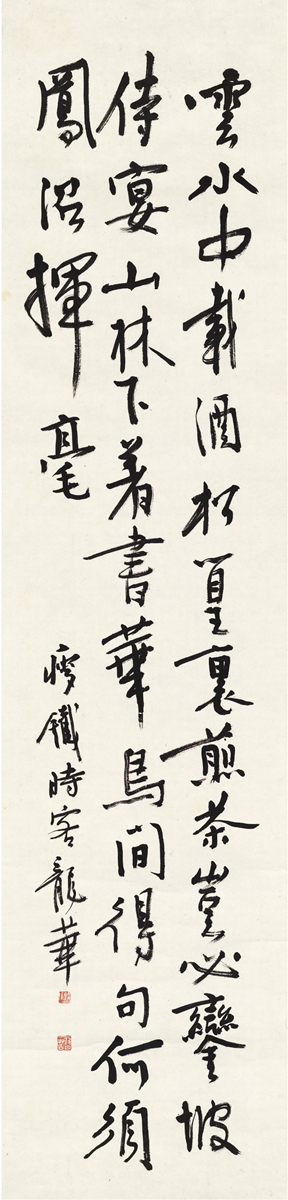 雲水中載酒松篁裏煎茶豈必鑾坡
侍宴山林下著書華鳥間得句何須
鳳沼揮毫
瘦鐵時客龍華